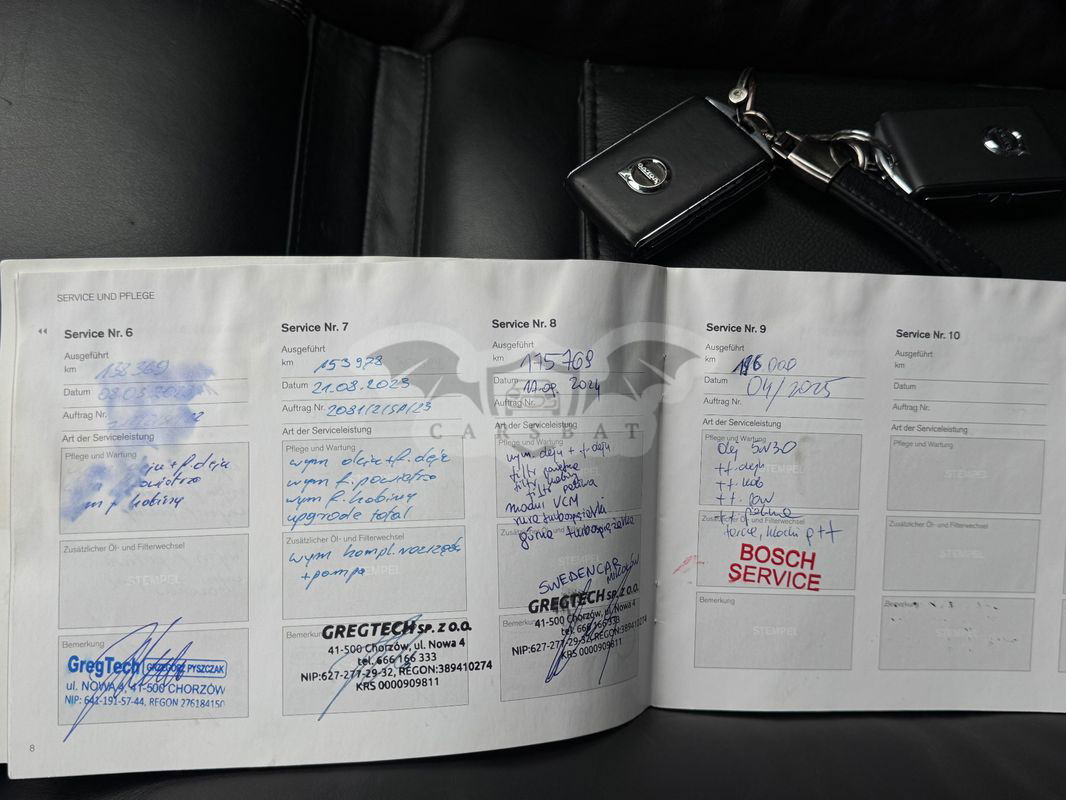 VOLVO
SERVICE UND PFLEGE
Service Nr. 6
Ausgeführt
km
Datum
Auftrag Nr.
Art der Serviceleistung
Pflege und Wartung
+ f. oleju
m f. kabiny
Zusätzlicher Öl- und Filterwechsel
STEMPEL
Bemerkung
GregTech GRZEGORZ PYSZCZAK
ul. NOWA 4, 41-500 CHORZÓW
NIP: 641-191-57-44, REGON 276184150
8
Service Nr. 7
Ausgeführt
km 153978
Datum 21.08.2023
Auftrag Nr. 2081/2/SP/23
Art der Serviceleistung
Pflege und Wartung
wym oleju + f. oleju
wym f. powietrza
wym f. kabiny
upgrade total
Zusätzlicher Öl- und Filterwechsel
wym kompl. rozrządu
+ pompa
STEMPEL
GREGTECH SP. Z O.O.
41-500 Chorzów, ul. Nowa 4
tel. 666 166 333
NIP:627-277-29-32, REGON:389410274
KRS 0000909811
Service Nr. 8
Ausgeführt
km 175769
Datum 17.09.2024
Auftrag Nr.
Art der Serviceleistung
Pflege und Wartung
wym. oleju + f. oleju
filtr powietrza
filtr kabiny
filtr paliwa
moduł VCM
rura turbosprężarki
górna turbosprężarka
SWEDENCAR
MIKOŁÓW
GREGTECH SP. Z O.O.
41-500 Chorzów, ul. Nowa 4
tel. 666 166 333
NIP:627-277-29-32, REGON:389410274
KRS 0000909811
CARSBAT
Service Nr. 9
Ausgeführt
km 196 000
Datum 04/2025
Auftrag Nr.
Art der Serviceleistung
Pflege und Wartung
olej 5W30
STEMPEL
++ oleju
++ kab
++ pow
++ paliwa
tarcze, klocki p + t
BOSCH
SERVICE
Bemerkung
STEMPEL
Service Nr. 10
Ausgeführt
km
Datum
Auftrag Nr.
Art der Serviceleistung
Pflege und Wartung
STEMPEL
Zusätzlicher Öl- und Filterwechsel
STEMPEL
Bemerkung
STEMPEL